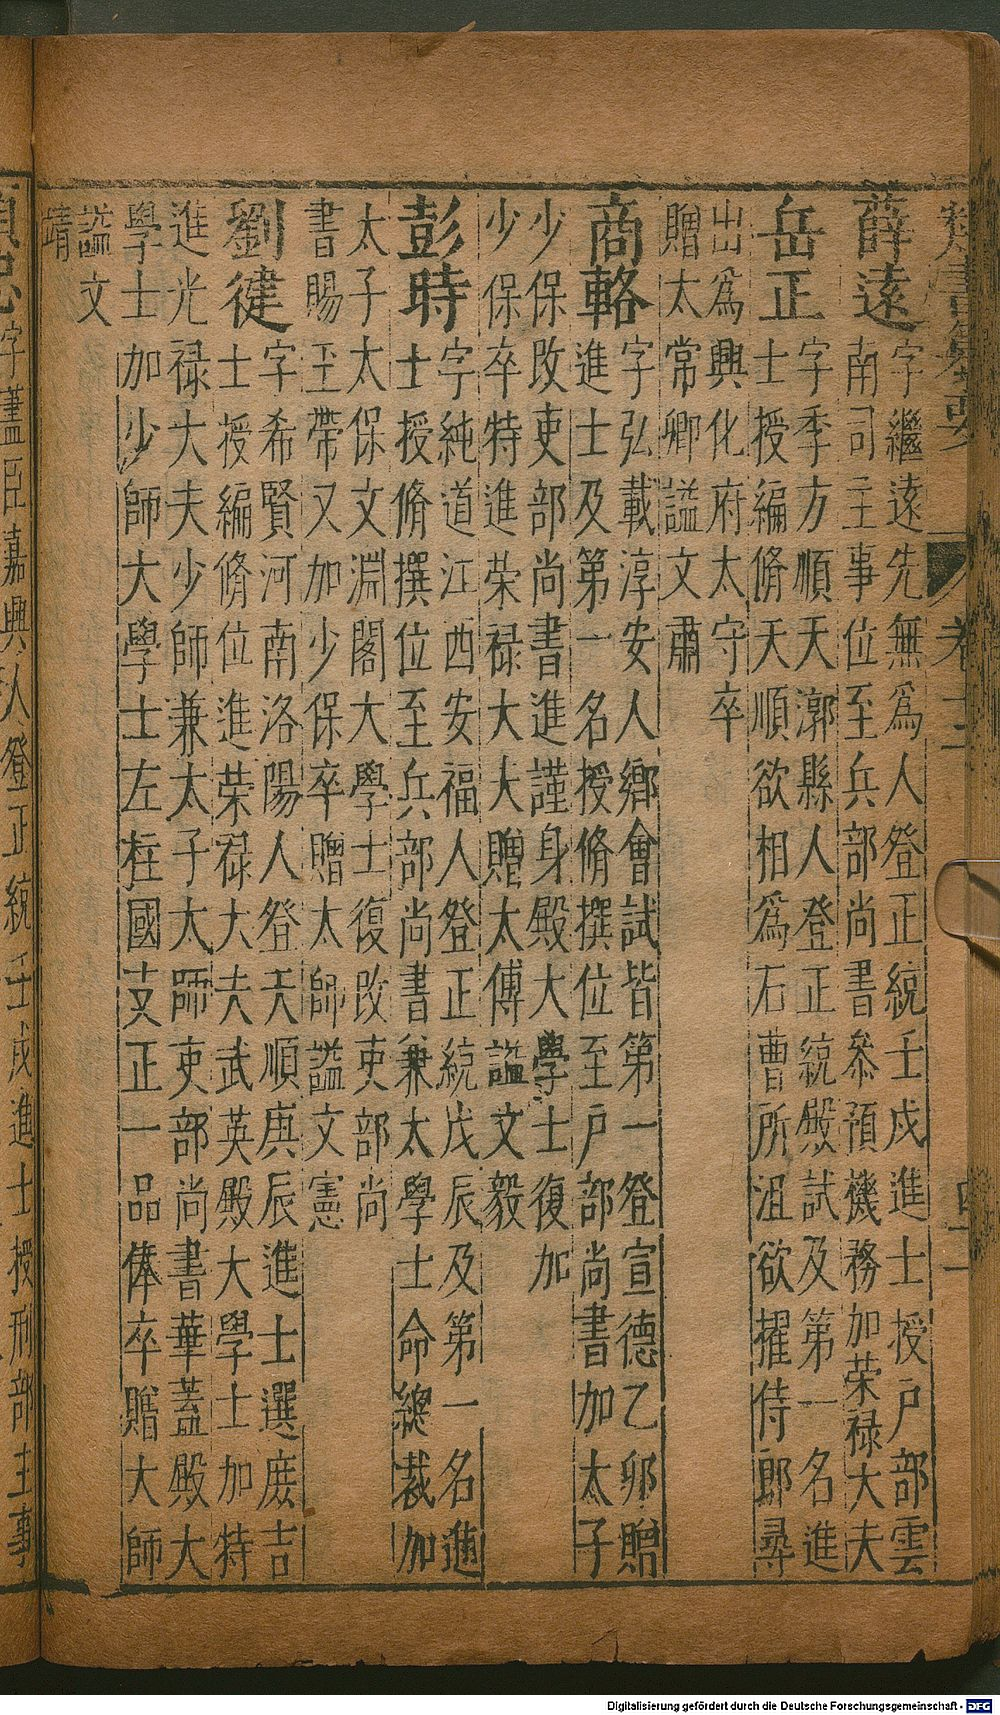 薛遠
字繼遠先無爲人登正統壬戌進士授戶部雲
南司主事位至兵部尚書叅預機務加荣禄大夫
岳正
字季方順天漷縣人登正統殿試及第一名進
士授編脩天順欲相爲石曹所沮欲擢侍郎尋
出爲興化府太守卒
贈太常卿謚文肅
商輅
字弘載淳安人鄉會試皆第一登宣德乙卯贈
進士及第一名授脩撰位至戶部尚書加太子
少保改吏部尚書進謹身殿大學士復加
少保卒特進荣禄大大贈太傅謚文毅
彭時
字純道江西安福人登正統戊辰及第一名進
士授脩撰位至兵部尚書兼太學士命總裁加
太子太保文淵閣大學士復改吏部尚
書賜玉帶又加少保卒贈太師謚文憲
劉健
字希賢河南洛陽人登天順庚辰進士選庶吉
士授編脩位進荣禄大夫武英殿大學士加特
進光禄大夫少師兼太子太師吏部尚書華蓋殿大
學士加少師大學士左柱國支正一品俸卒贈大師
謚文
靖
字藎臣嘉興人登正統壬戌進士授刑部主事
卷十二
Digitalisierung gefördert durch die Deutsche Forschungsgemeinschaft - DFG